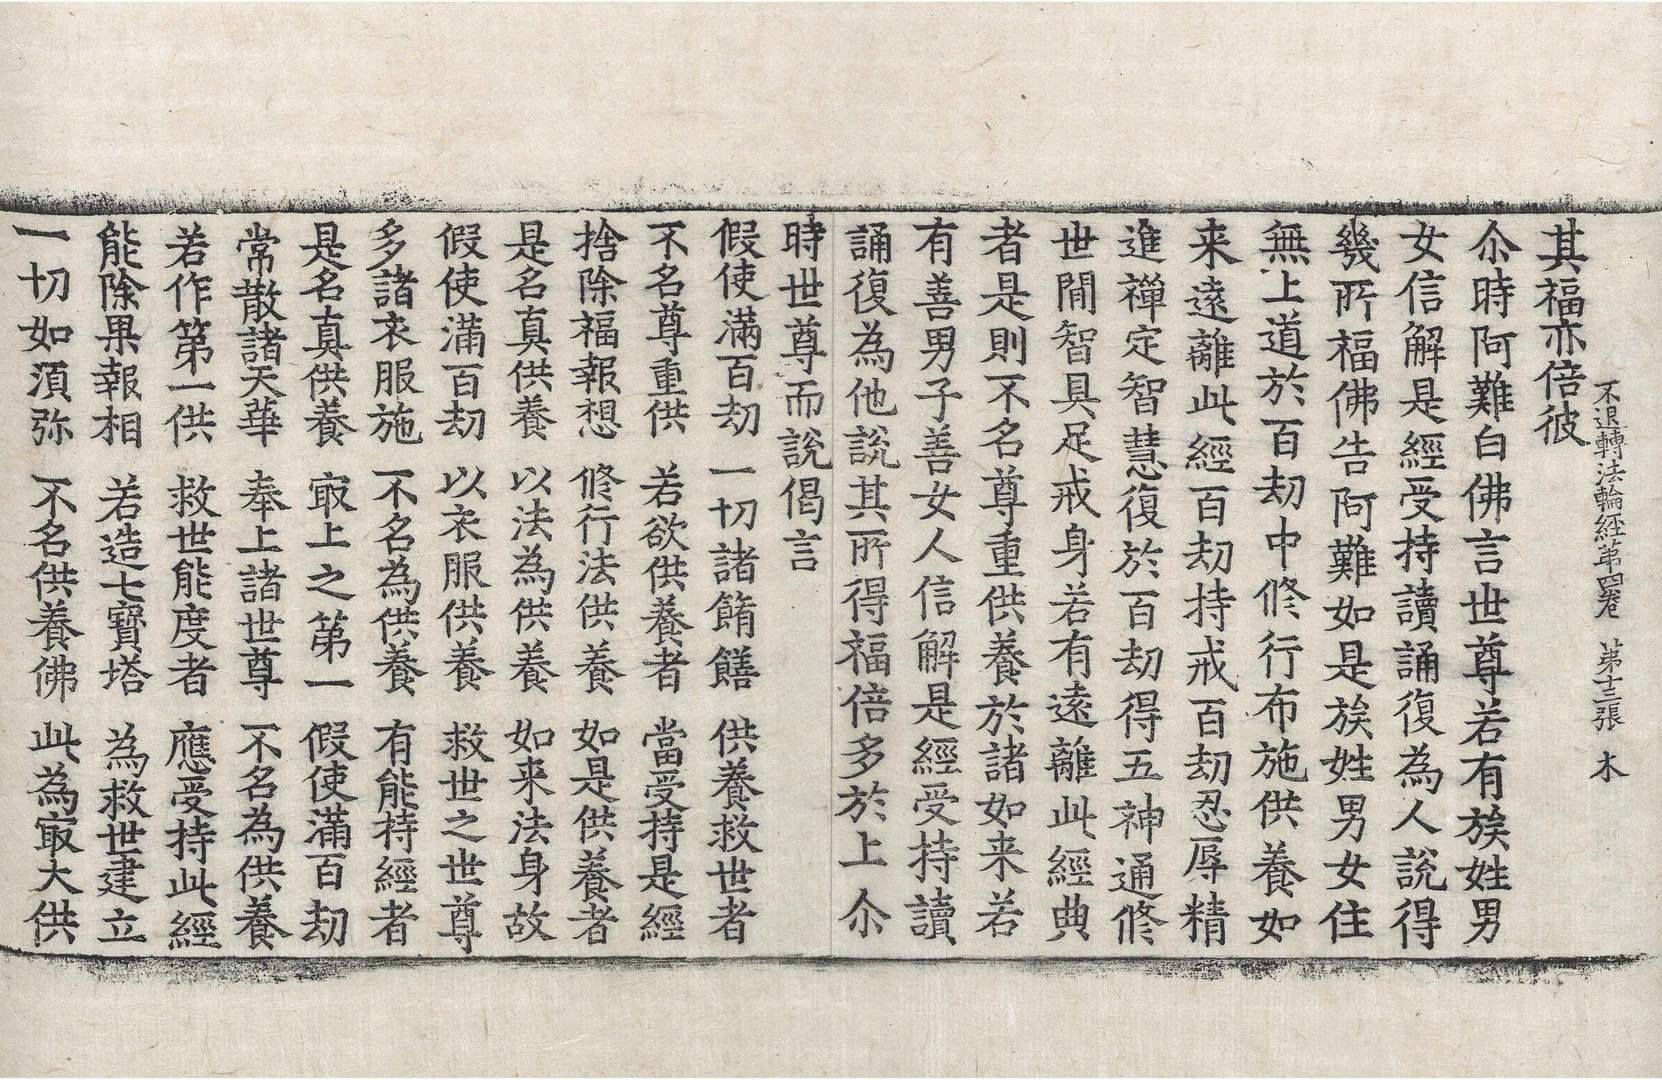 不退轉法輪經第四卷 第十三張 木
其福亦倍彼
尒時阿難白佛言世尊若有族姓男
女信解是經受持讀誦復為人說得
幾所福佛告阿難如是族姓男女住
無上道於百劫中修行布施供養如
来遠離此經百劫持戒百劫忍辱精
進禪定智慧復於百劫得五神通修
世間智具足戒身若有遠離此經典
者是則不名尊重供養於諸如来若
有善男子善女人信解是經受持讀
誦復為他說其所得福倍多於上尒
時世尊而說偈言
假使滿百劫 一切諸餚饍 供養救世者
不名尊重供 若欲供養者 當受持是經
捨除福報想 修行法供養 如是供養者
是名真供養 以法為供養 如来法身故
假使滿百劫 以衣服供養 救世之世尊
多諸衣服施 不名為供養 有能持經者
是名真供養 㝡上之第一 假使滿百劫
常散諸天華 奉上諸世尊 不名為供養
若作第一供 救世能度者 應受持此經
能除果報相 若造七寶塔 為救世建立
一切如湏弥 不名供養佛 此為㝡大供